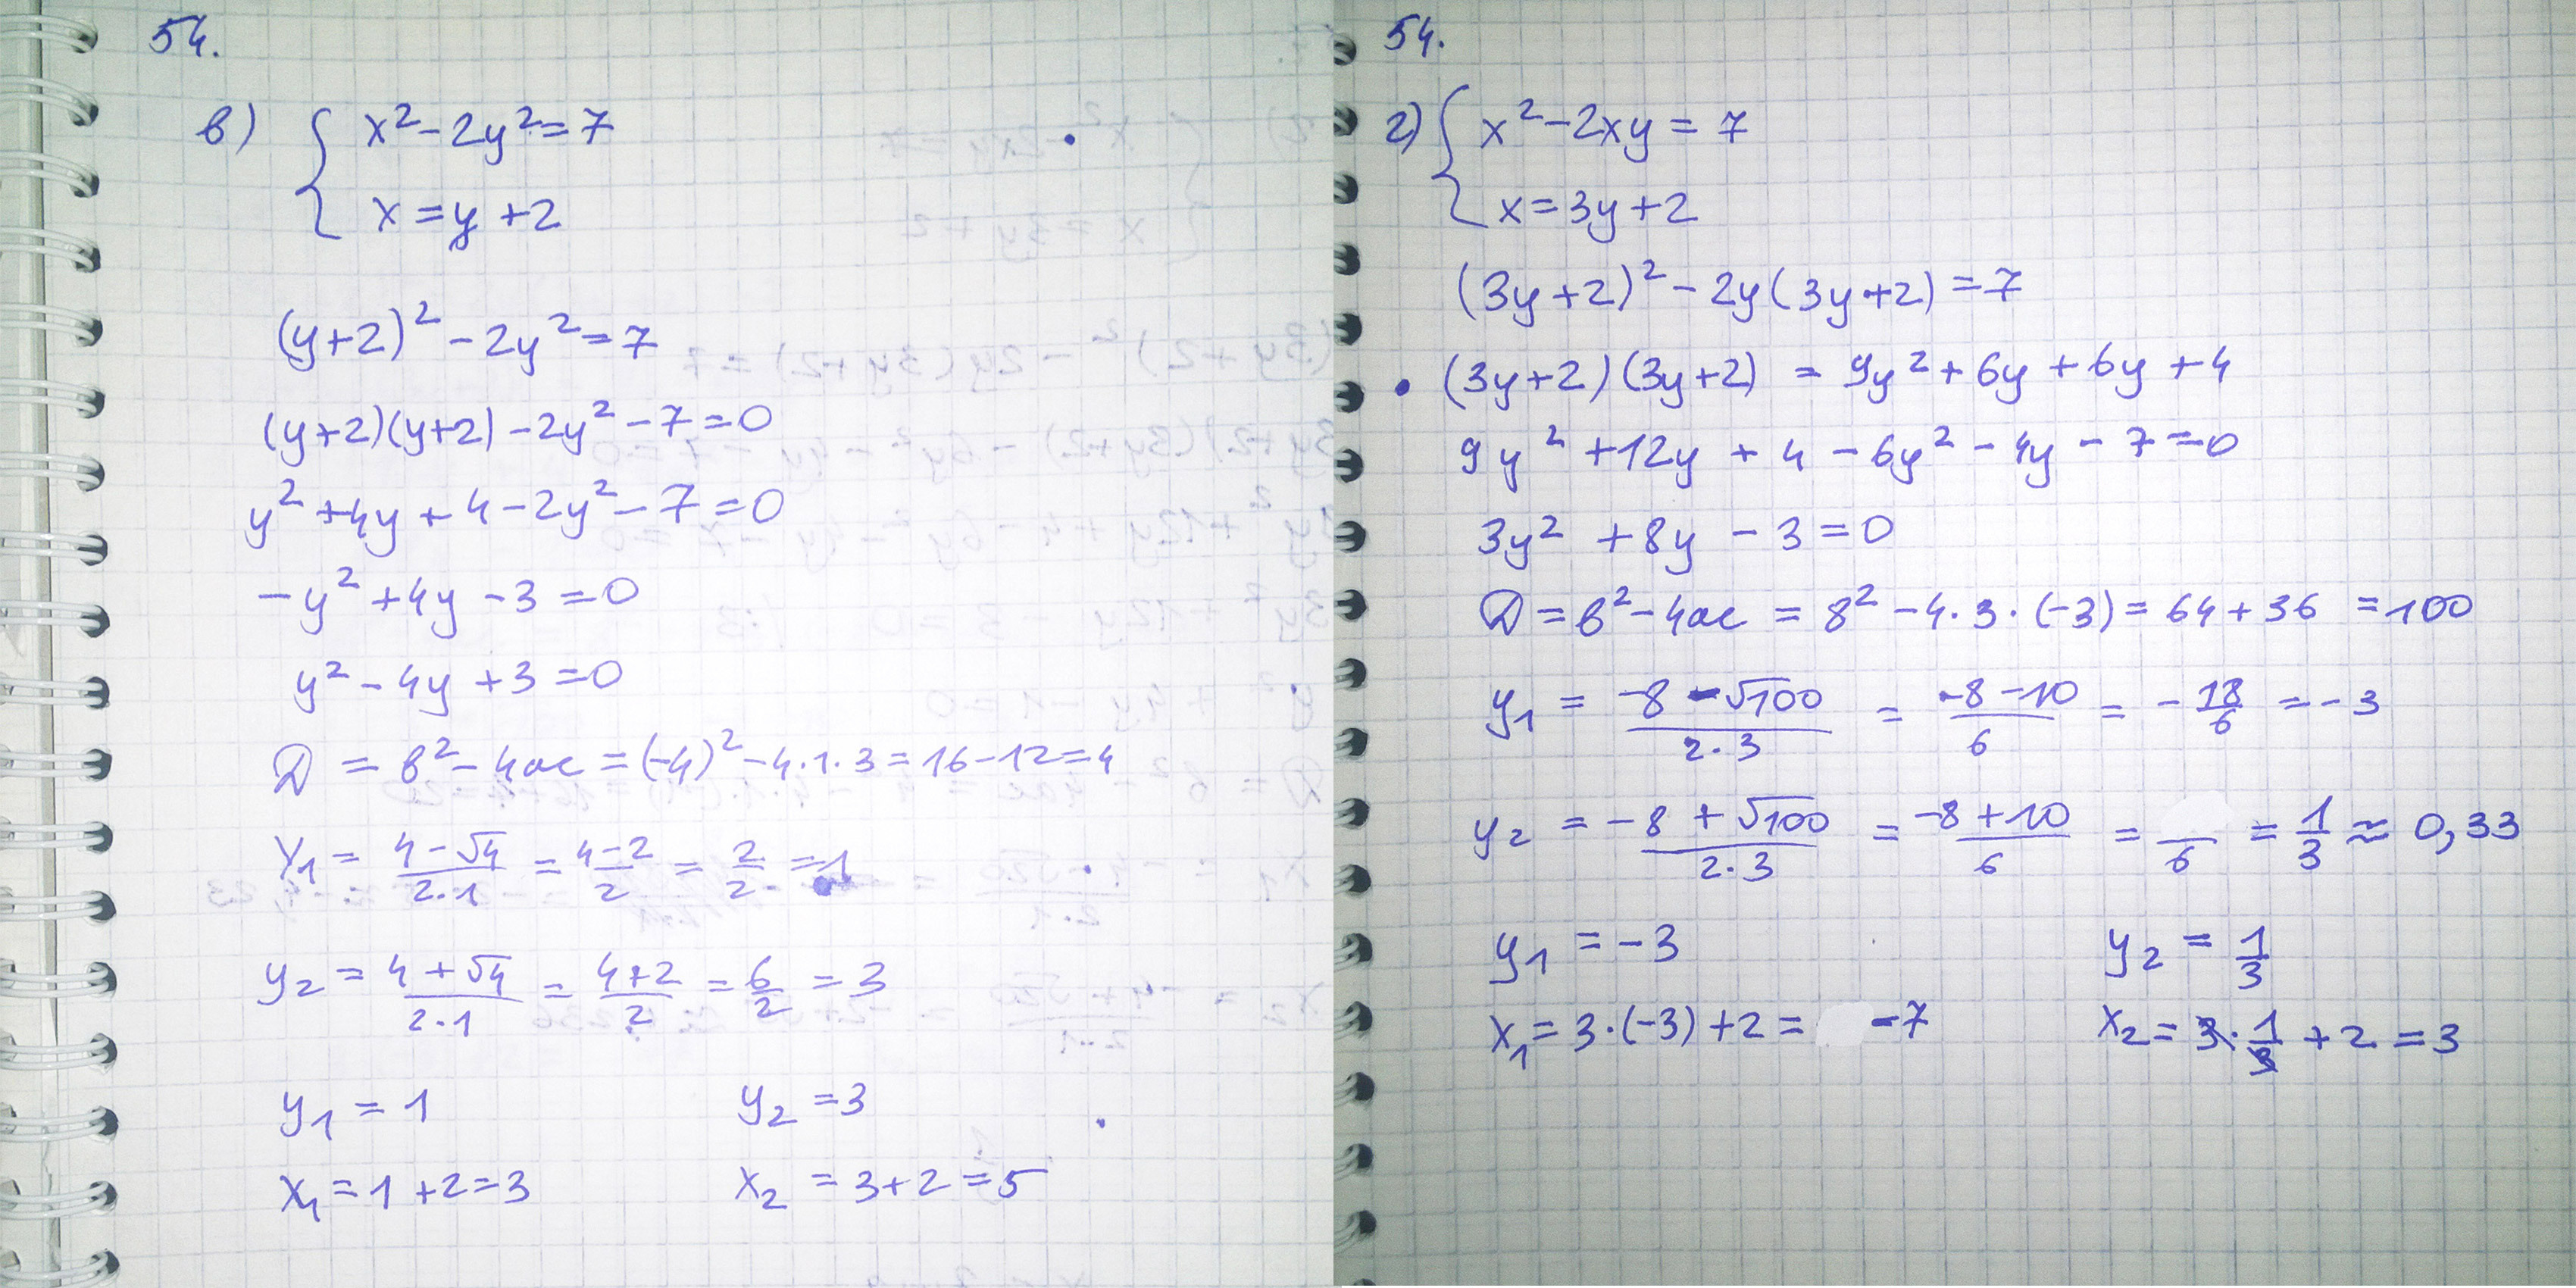 54.
в) { x² - 2y² = 7
x = y + 2
(y+2)² - 2y² = 7
(y+2)(y+2) - 2y² - 7 = 0
y² + 4y + 4 - 2y² - 7 = 0
-y² + 4y - 3 = 0
y² - 4y + 3 = 0
D = b² - 4ac = (-4)² - 4·1·3 = 16 - 12 = 4
y₁ = (4 - √4)/(2·1) = (4-2)/2 = 2/2 = 1
y₂ = (4 + √4)/(2·1) = (4+2)/2 = 6/2 = 3
y₁ = 1 y₂ = 3
x₁ = 1 + 2 = 3 x₂ = 3 + 2 = 5
54.
г) { x² - 2xy = 7
x = 3y + 2
(3y+2)² - 2y(3y+2) = 7
• (3y+2)(3y+2) = 9y² + 6y + 6y + 4
9y² + 12y + 4 - 6y² - 4y - 7 = 0
3y² + 8y - 3 = 0
D = b² - 4ac = 8² - 4·3·(-3) = 64 + 36 = 100
y₁ = (-8 - √100)/(2·3) = (-8 - 10)/6 = -18/6 = -3
y₂ = (-8 + √100)/(2·3) = (-8 + 10)/6 = /6 = 1/3 ≈ 0,33
y₁ = -3 y₂ = 1/3
x₁ = 3·(-3) + 2 = -7 x₂ = 3·1/3 + 2 = 3